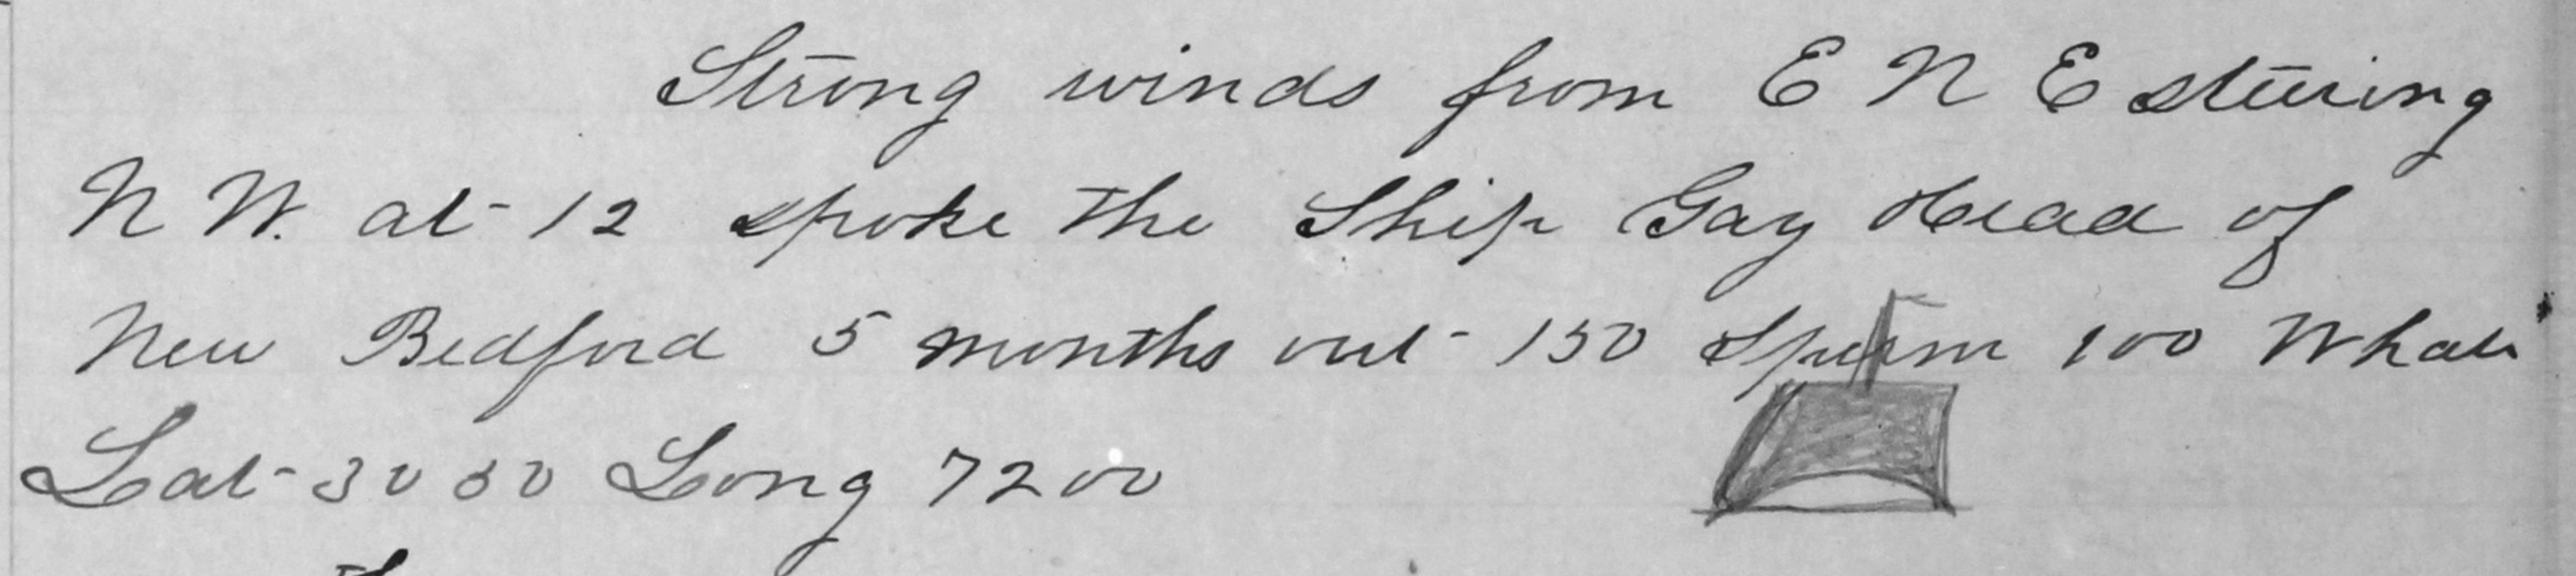 Strong winds from E N E steering
N W. at 12 spoke the Ship Gay Head of
New Bedford 5 months out 150 Sperm 100 Whale
Lat 30 50 Long 72 00